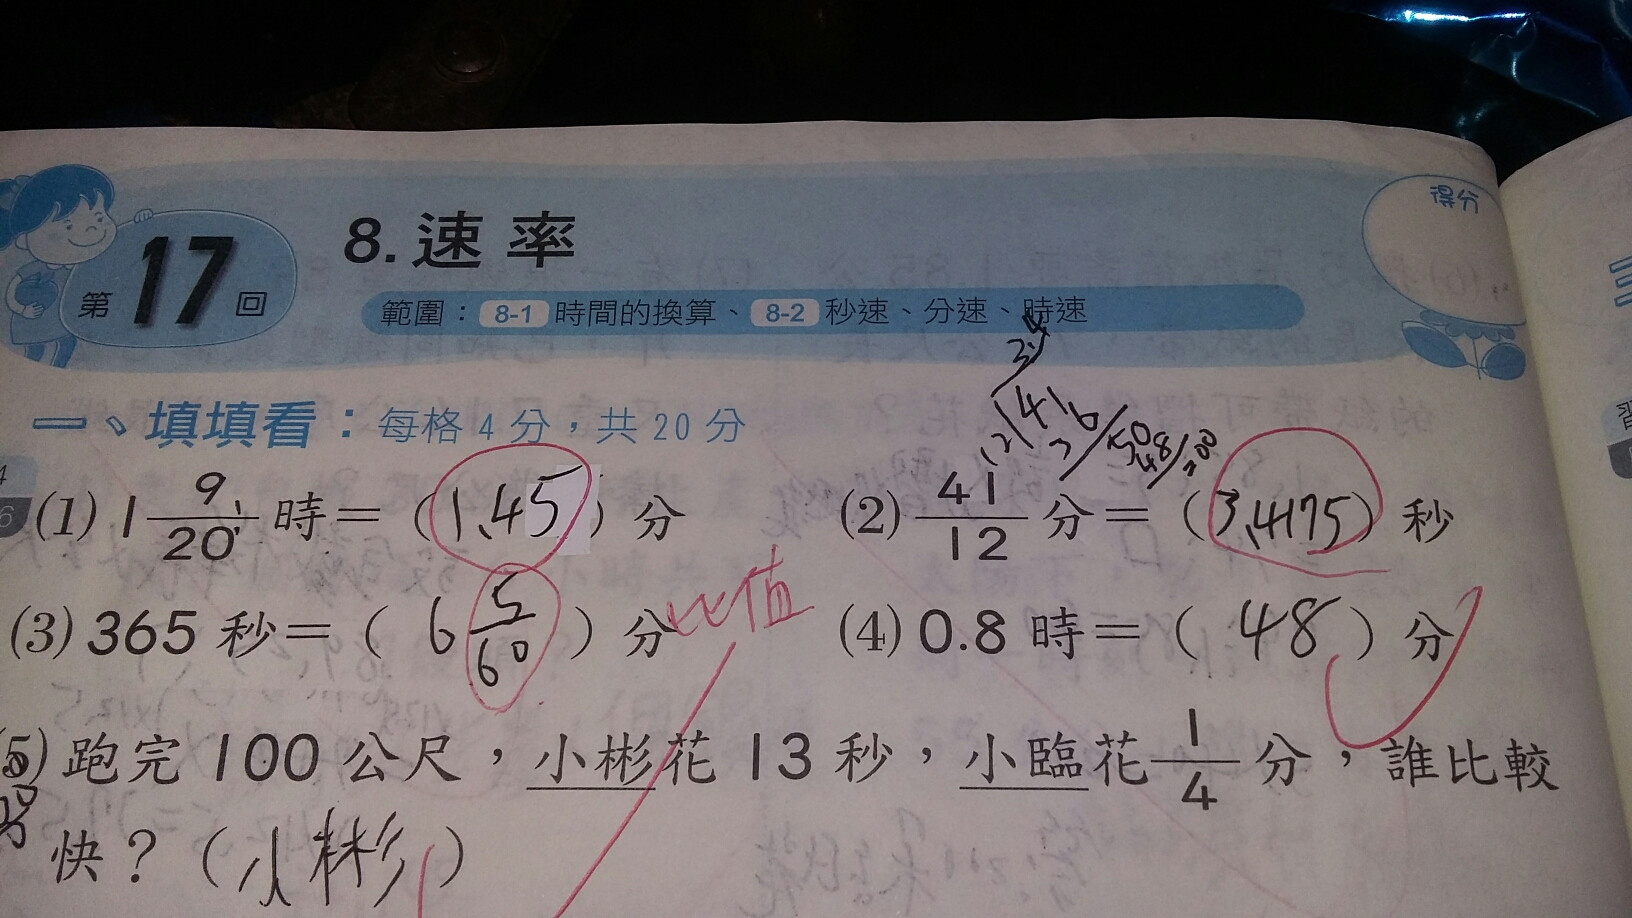 得分
第 17 回
8. 速率
範圍：8-1 時間的換算、8-2 秒速、分速、時速
一、填填看：每格 4 分，共 20 分
(1) 1 9/20 時＝（1.45）分
(2) 41/12 分＝（3.4175）秒
(3) 365 秒＝（6 5/60）分
比值
(4) 0.8 時＝（48）分
(5) 跑完 100 公尺，小彬花 13 秒，小臨花 1/4 分，誰比較
快？（小彬）